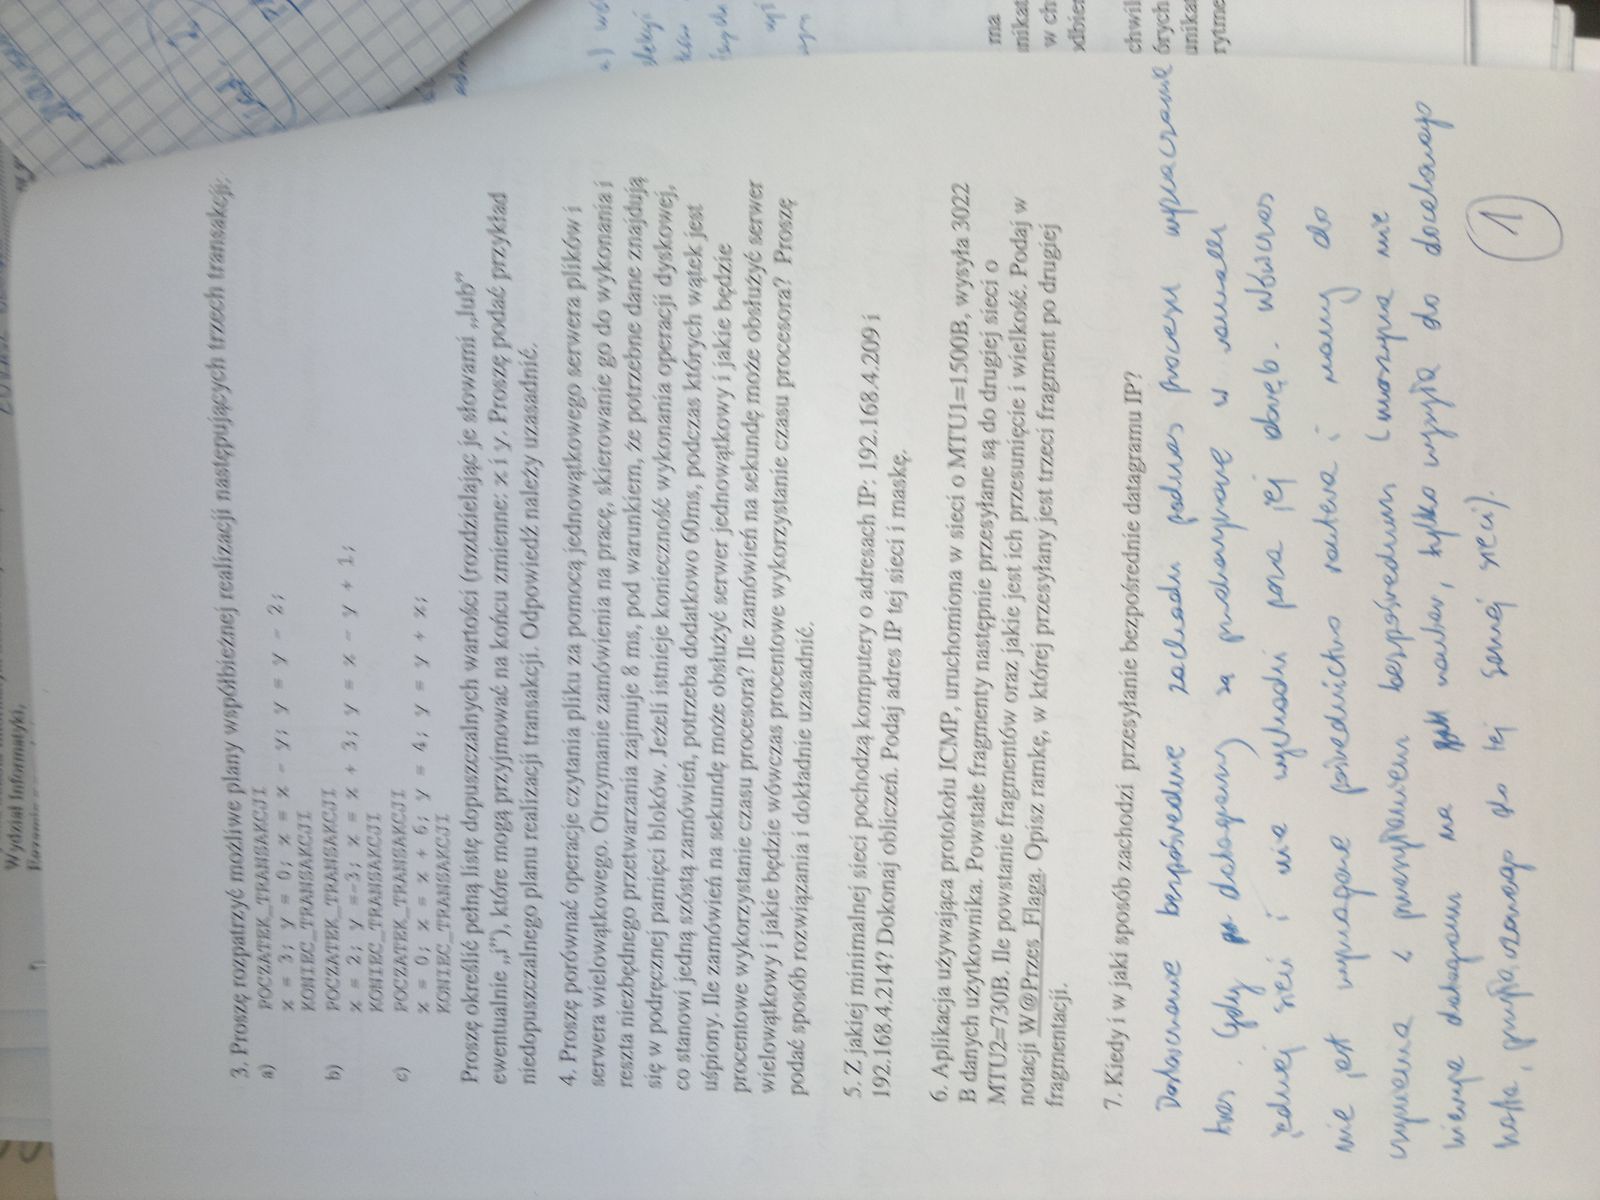 Wydział Informatyki,
3. Proszę rozpatrzyć możliwe plany współbieżnej realizacji następujących trzech transakcji:
a) POCZATEK_TRANSAKCJI
x = 3; y = 0; x = x - y; y = y - 2;
KONIEC_TRANSAKCJI
b) POCZATEK_TRANSAKCJI
x = 2; y =-3; x = x + 3; y = x - y + 1;
KONIEC_TRANSAKCJI
c) POCZATEK_TRANSAKCJI
x = 0; x = x + 6; y = 4; y = y + x;
KONIEC_TRANSAKCJI
Proszę określić pełną listę dopuszczalnych wartości (rozdzielając je słowami „lub”
ewentualnie „i”), które mogą przyjmować na końcu zmienne: x i y. Proszę podać przykład
niedopuszczalnego planu realizacji transakcji. Odpowiedź należy uzasadnić.
4. Proszę porównać operacje czytania pliku za pomocą jednowątkowego serwera plików i
serwera wielowątkowego. Otrzymanie zamówienia na pracę, skierowanie go do wykonania i
reszta niezbędnego przetwarzania zajmuje 8 ms, pod warunkiem, że potrzebne dane znajdują
się w podręcznej pamięci bloków. Jeżeli istnieje konieczność wykonania operacji dyskowej,
co stanowi jedną szóstą zamówień, potrzeba dodatkowo 60ms, podczas których wątek jest
uśpiony. Ile zamówień na sekundę może obsłużyć serwer jednowątkowy i jakie będzie
procentowe wykorzystanie czasu procesora? Ile zamówień na sekundę może obsłużyć serwer
wielowątkowy i jakie będzie wówczas procentowe wykorzystanie czasu procesora? Proszę
podać sposób rozwiązania i dokładnie uzasadnić.
5. Z jakiej minimalnej sieci pochodzą komputery o adresach IP: 192.168.4.209 i
192.168.4.214? Dokonaj obliczeń. Podaj adres IP tej sieci i maskę.
6. Aplikacja używająca protokołu ICMP, uruchomiona w sieci o MTU1=1500B, wysyła 3022
B danych użytkownika. Powstałe fragmenty następnie przesyłane są do drugiej sieci o
MTU2=730B. Ile powstanie fragmentów oraz jakie jest ich przesunięcie i wielkość. Podaj w
notacji W@Przes_Flaga. Opisz ramkę, w której przesyłany jest trzeci fragment po drugiej
fragmentacji.
7. Kiedy i w jaki sposób zachodzi przesyłanie bezpośrednie datagramu IP?
Dostarczanie bezpośrednie zachodzi podczas procesu wyznaczania
tras. Gdy datagramy są przekazywane w ramach
jednej sieci i nie wychodzi poza jej obręb. Wówczas
nie jest wymagane pośrednictwo routera i mamy do
czynienia z przesyłaniem bezpośrednim (maszyna nie
kieruje datagramu na router, tylko wysyła do docelowego
hosta, do tej samej sieci).
1